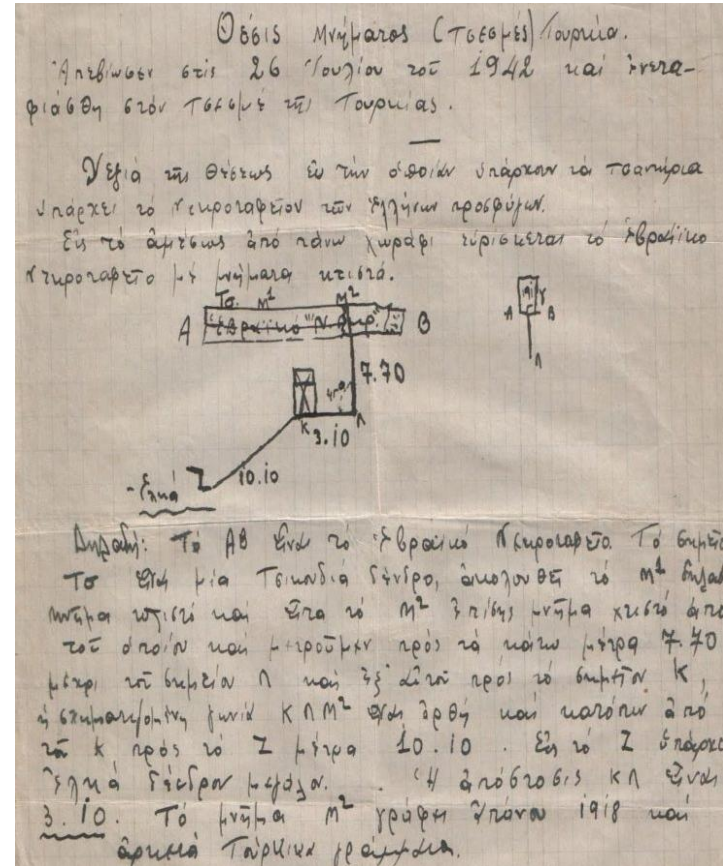 Θέσις Μνήματος (Τσεσμές) Τουρκία.
Ἀπεβίωσεν στίς 26 Ἰουλίου τοῦ 1942 καί ἐνετα-
φιάσθη στόν Τσεσμέ τῆς Τουρκίας.
Δεξιά τῆς θέσεως ἐν τήν ὁποίαν ὑπάρχουν τά τσαντήρια
ὑπάρχει τό Νεκροταφεῖον τῶν Ἑλλήνων προσφύγων.
Εἰς τό ἀμέσως ἀπό πάνω χωράφι εὑρίσκεται τό Ἑβραίικο
Νεκροταφεῖο μέ μνήματα κτιστά.
Τσ. Μ1 Μ2
Α "Ἑβραϊκό" "Νεκρ." Β
Α Β
Λ
7.70
Κ 3.10 Λ
10.10
Ἐλιά Ζ
Δηλαδή: Τό ΑΒ εἶναι τό Ἑβραϊκό Νεκροταφεῖο. Τό σημεῖο
Τσ εἶναι μία Τσικουδιά δένδρο, ἀκολουθεῖ τό Μ1 δηλαδ
μνῆμα κτιστό καί εἶτα τό Μ2 ἐπίσης μνῆμα χτιστό ἀπό
τοῦ ὁποίου καί μετροῦμεν πρός τά κάτω μέτρα 7.70
μέχρι τοῦ σημείου Λ καί ἐξ αὐτοῦ πρός τό σημεῖον Κ,
ἡ σχηματιζομένη γωνία ΚΛΜ2 εἶναι ὀρθή καί κατόπιν ἀπό
τό Κ πρός τό Ζ μέτρα 10.10. Εἰς τό Ζ ὑπάρχει
Ἐλιά δένδρον μεγάλον. Ἡ ἀπόστασις ΚΛ εἶναι
3.10. Τό μνῆμα Μ2 γράφει ἐπάνω 1918 καί
ἀρκετά Τούρκικα γράμματα.